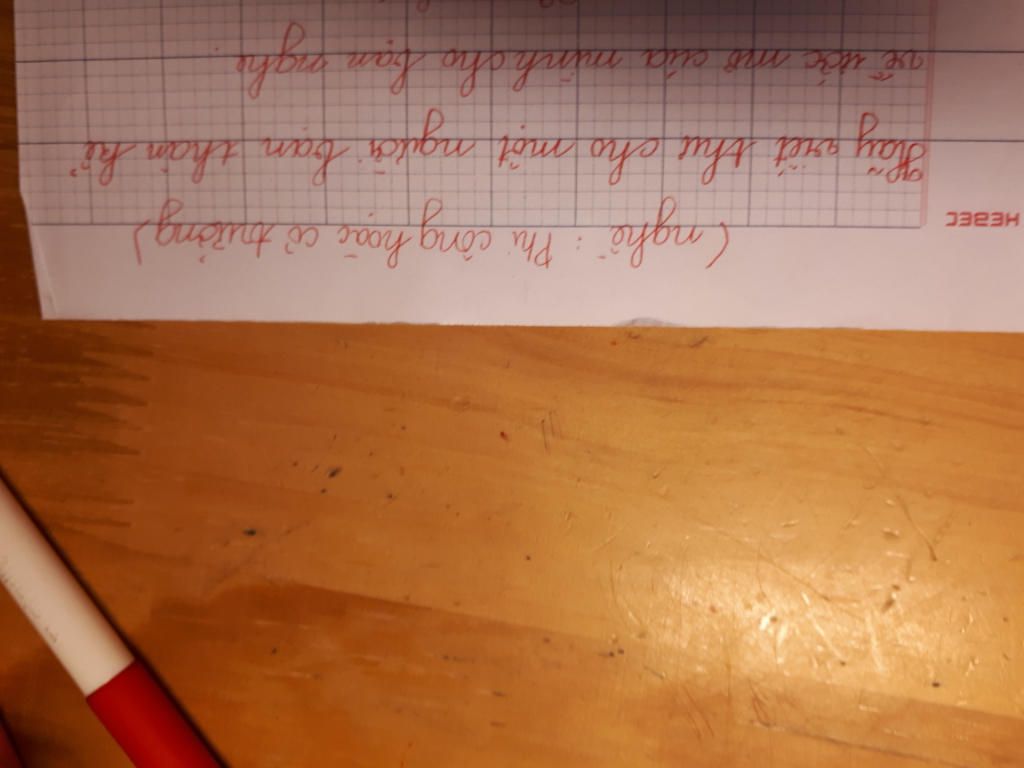 (nghề : Phi công hoặc cơ trưởng)
HEBEC
Hãy viết thư cho một người bạn thân kể
về ước mơ của mình cho bạn nghe